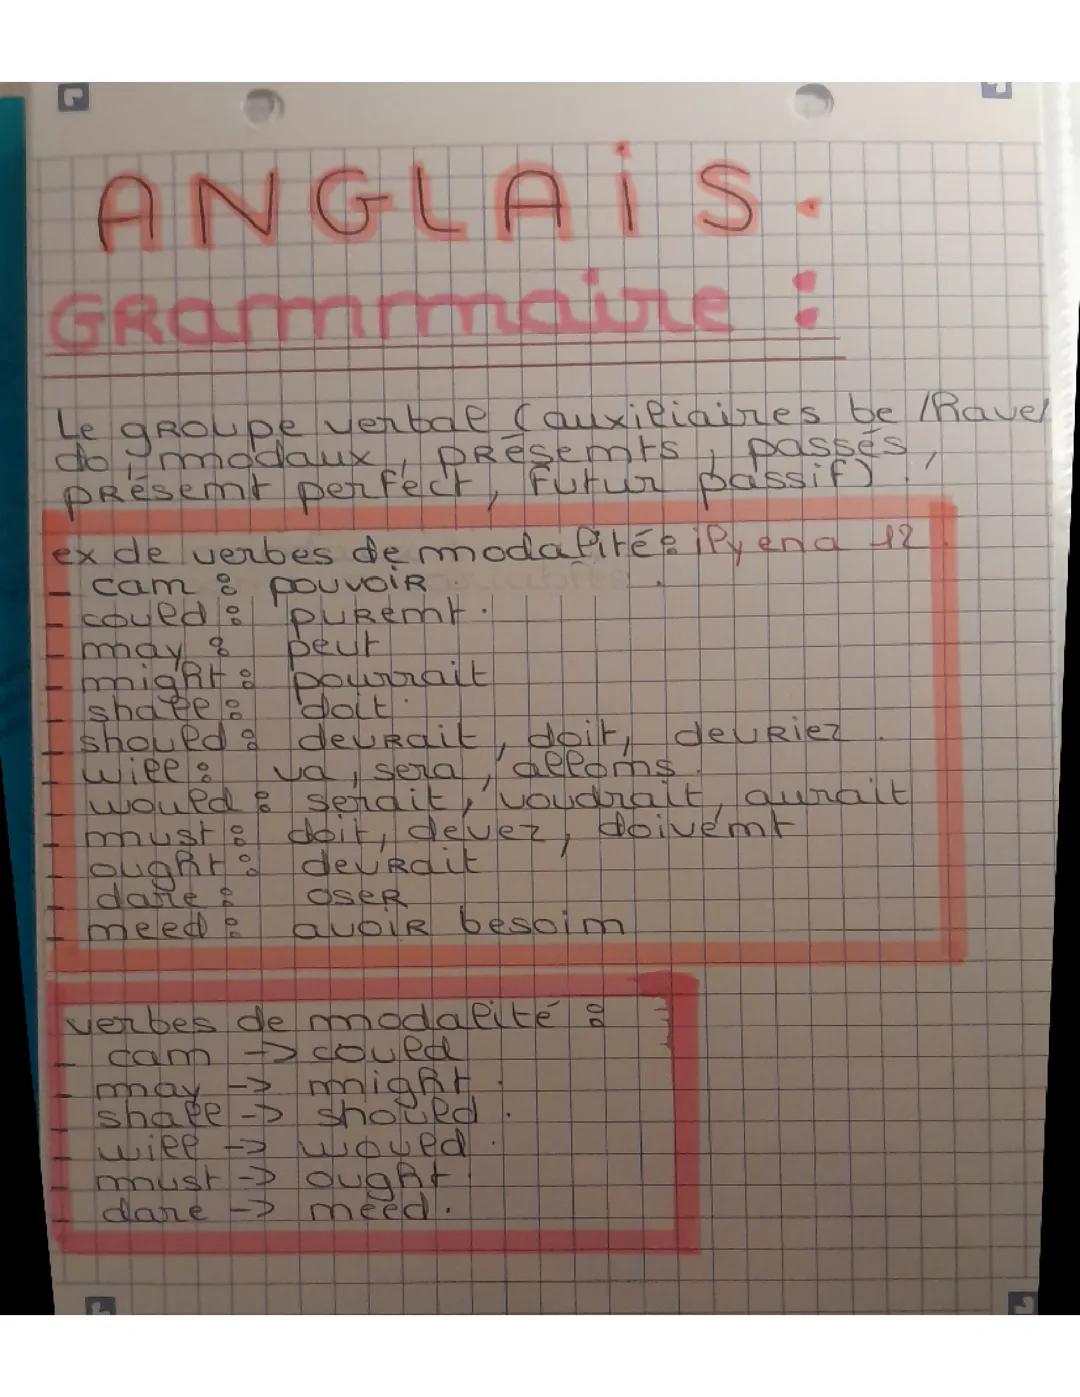 ANGLAiS.
GRammaire :
Le gROupe verbal (auxiliaires be /have/
do, modaux, pRésents, passés,
pRésent perfect, futur passif).
ex de verbes de modalité : il y en a 12.
- can : pouvoiR.
- could : puRent.
- may : peut
- might : pourrait
- shall : doit.
- should : devRait, doit, devRiez.
- will : va, sera, allons.
- would : serait, voudrait, aurait
- must : doit, devez, doivent
- ought : devRait
- dare : oseR
- need : avoiR besoin
verbes de modalité :
- can -> could
- may -> might.
- shall -> should.
- will -> would.
- must -> ought.
- dare -> need.